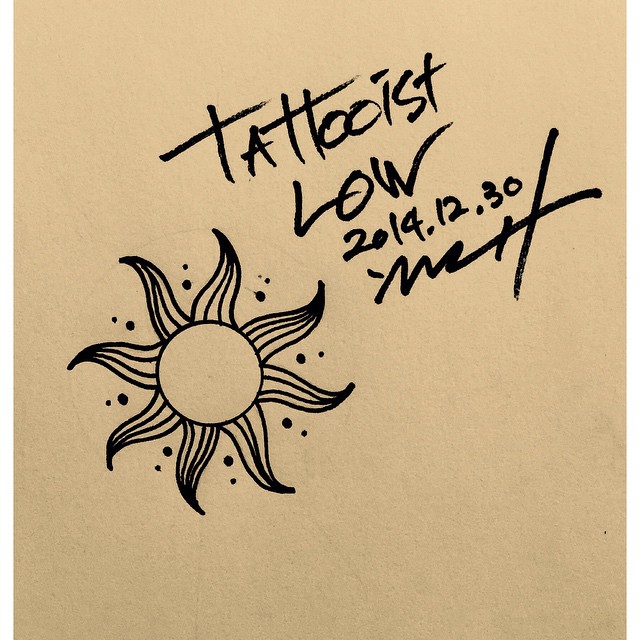 TATTOOIST
LOW
2014.12.30